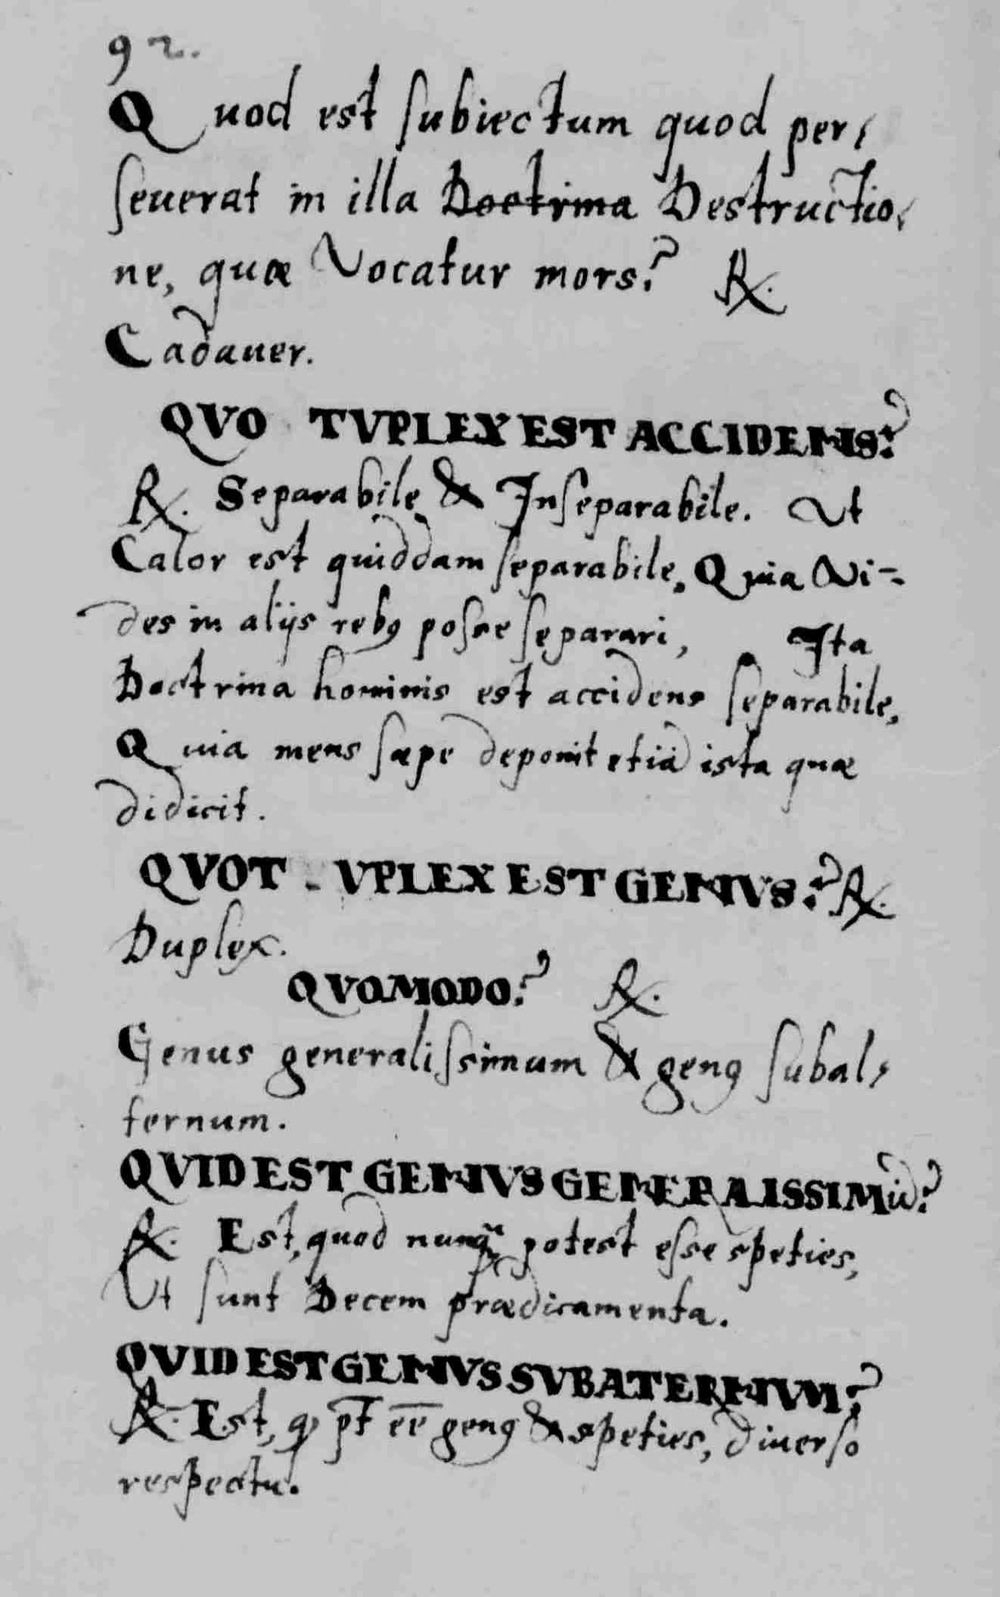 92.
Quod est ſubiectum quod per⸗
ſeuerat in illa Doctrina Destructio⸗
ne, quæ Vocatur mors? ℞.
Cadauer.
QVO TVPLEX EST ACCIDENS?
℞. Separabile & Inſeparabile. Ut
Calor est quiddam ſeparabile, Quia Vi-
des in alijs rebꝰ poſse ſeparari, Ita
Doctrina hominis est accidens ſeparabile,
Quia mens ſæpe deponit etiã ista quæ
didicit.
QVOT VPLEX EST GENVS? ℞.
Duplex.
QVOMODO? ℞.
Genus generaliſsimum & genꝰ ſubal⸗
ternum.
QVID EST GENVS GENERALISSIMũ?
℞. Est, quod nunqᷓ potest eſse speties,
Ut ſunt Decem prædicamenta.
QVID EST GENVS SVBATERNVM?
℞. Est, ꝙ pt̄ eē genꝰ & speties, diuerſo
respectu.